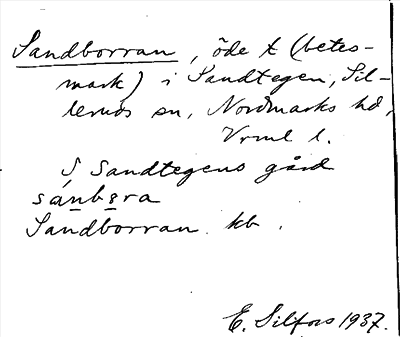 Sandborran, öde t (betes-
mark) i Sandtegen, Sil-
lerud sn, Nordmarks hd,
Vrml l.
S Sandtegens gård
sánbɛra
Sandborran kb.
E. Silfors 1937.